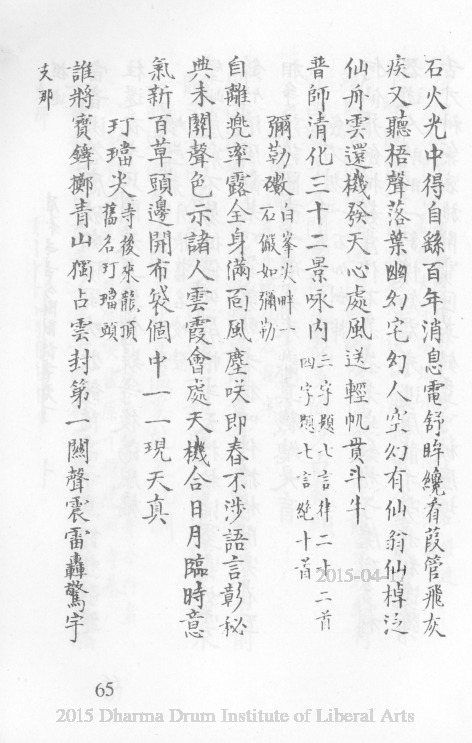 石火光中得自繇百年消息電舒眸纔看葭管飛灰
疾又聽梧聲落葉幽幻宅幻人空幻有仙翁仙棹泛
仙舟雲還機發天心處風送輕帆貫斗牛
普師清化三十二景咏內三字題七言律二十二首四字題七言絕十首
彌勒磝白峯尖畔一石儼如彌勒
自離兜率露全身滿面風塵咲即春不涉語言彰秘
典未關聲色示諸人雲霞會處天機合日月臨時意
氣新百草頭邊開布袋個中一一現天真
玎璫尖寺後來龍頂舊名玎璫頭
誰將寶鐸擲青山獨占雲封第一關聲震雷轟驚宇
支那
65
2015-04-17
2015 Dharma Drum Institute of Liberal Arts